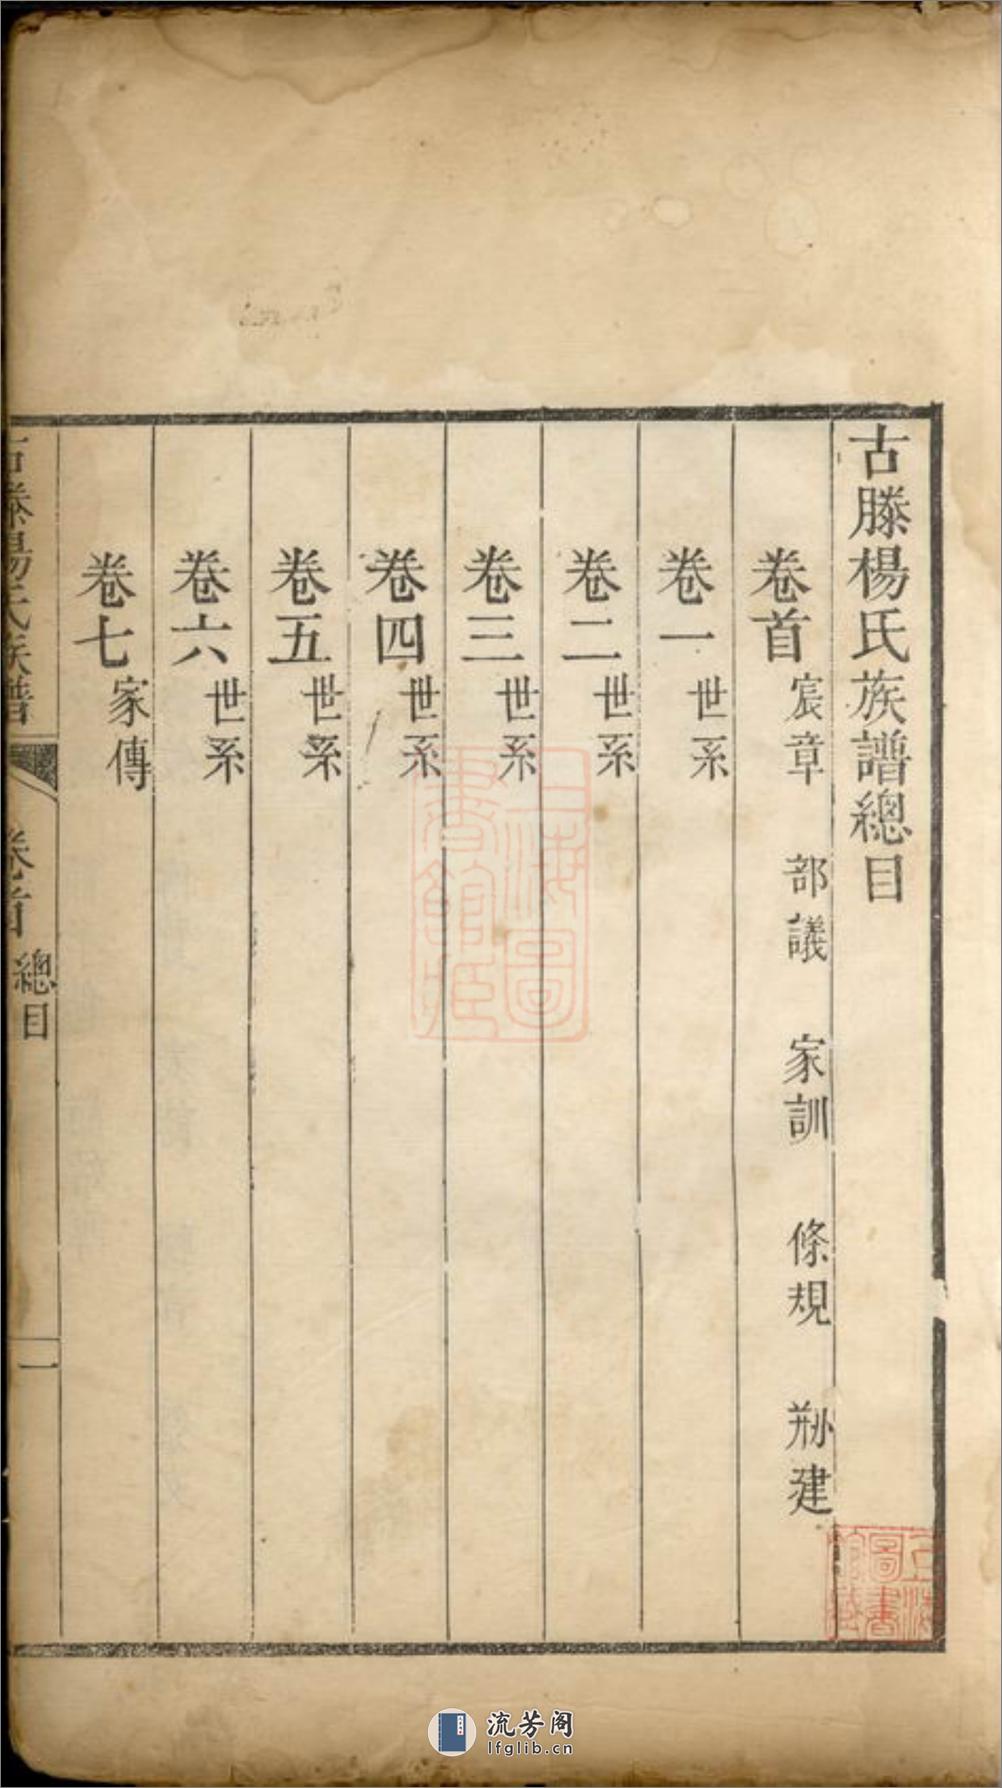 古滕楊氏族譜總目
卷首 宸章 部議 家訓 條規 剙建
卷一 世系
卷二 世系
卷三 世系
卷四 世系
卷五 世系
卷六 世系
卷七 家傳
古滕楊氏族譜 卷首 總目 一
上海圖書館藏
上海圖書館藏
流芳阁
lfglib.cn